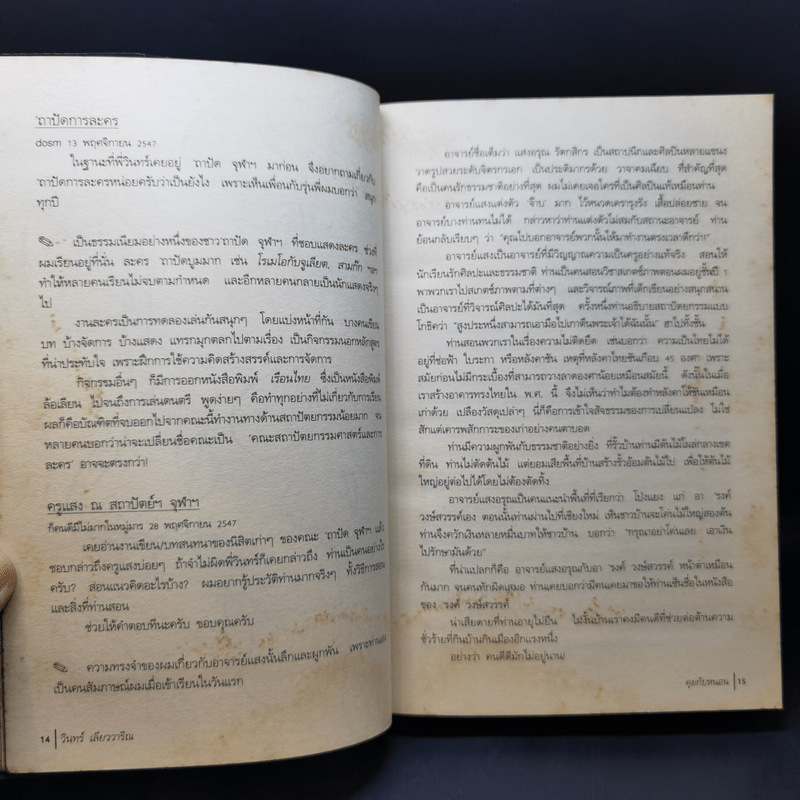 'ถาปัดการละคร
dosm 13 พฤศจิกายน 2547
ในฐานะที่พี่วินทร์เคยอยู่ 'ถาปัด จุฬาฯ มาก่อน จึงอยากถามเกี่ยวกับ
'ถาปัดการละครหน่อยครับว่าเป็นยังไง เพราะเห็นเพื่อนกับรุ่นพี่ผมบอกว่า สนุก
ทุกปี
เป็นธรรมเนียมอย่างหนึ่งของชาว 'ถาปัด จุฬาฯ ที่ชอบแสดงละคร ช่วงที่
ผมเรียนอยู่ที่นั่น ละคร 'ถาปัดบูมมาก เช่น โรเมโอกับจูเลียต, สามก๊ก ฯลฯ
ทำให้หลายคนเรียนไม่จบตามกำหนด และอีกหลายคนกลายเป็นนักแสดงจริงๆ
ไป
งานละครเป็นการทดลองเล่นกันสนุกๆ โดยแบ่งหน้าที่กัน บางคนเขียน
บท บ้างจัดการ บ้างแสดง แทรกมุกตลกไปตามเรื่อง เป็นกิจกรรมนอกหลักสูตร
ที่น่าประทับใจ เพราะฝึกการใช้ความคิดสร้างสรรค์และการจัดการ
กิจกรรมอื่นๆ ก็มีการออกหนังสือพิมพ์ เรือนไทย ซึ่งเป็นหนังสือพิมพ์
ล้อเลียน ไปจนถึงการเล่นดนตรี พูดง่ายๆ คือทำทุกอย่างที่ไม่เกี่ยวกับการเรียน
ผลก็คือบัณฑิตที่จบออกไปจากคณะนี้ทำงานทางด้านสถาปัตยกรรมน้อยมาก จน
หลายคนบอกว่าน่าจะเปลี่ยนชื่อคณะเป็น 'คณะสถาปัตยกรรมศาสตร์และการ
ละคร' อาจจะตรงกว่า!
ครูแสง ณ สถาปัตย์ฯ จุฬาฯ
ก็คนดีมีไม่มากในหมู่มาร 28 พฤศจิกายน 2547
เคยอ่านงานเขียน/บทสนทนาของนิสิตเก่าๆ ของคณะ 'ถาปัด จุฬาฯ แล้ว
ชอบกล่าวถึงครูแสงบ่อยๆ ถ้าจำไม่ผิดพี่วินทร์ก็เคยกล่าวถึง ท่านเป็นคนอย่างไร
ครับ? สอนแนวคิดอะไรบ้าง? ผมอยากรู้ประวัติท่านมากจริงๆ ทั้งวิธีการสอน
และสิ่งที่ท่านสอน
ช่วยให้คำตอบทีนะครับ ขอบคุณครับ
ความทรงจำของผมเกี่ยวกับอาจารย์แสงนั้นลึกและผูกพัน เพราะท่าน
เป็นคนสัมภาษณ์ผมเมื่อเข้าเรียนในวันแรก
14 วินทร์ เลียววาริณ
อาจารย์ชื่อเต็มว่า แสงอรุณ รัตกสิกร เป็นสถาปนิกและศิลปินหลายแขนง
วาดรูปสวยระดับจิตรกรเอก เป็นประติมากรด้วย วาจาคมเฉียบ ที่สำคัญที่สุด
คือเป็นคนรักธรรมชาติอย่างที่สุด ผมไม่เคยเจอใครที่เป็นศิลปินแท้เหมือนท่าน
อาจารย์แสงแต่งตัว 'จ๊าบ' มาก ไว้หนวดเครารุงรัง เสื้อปล่อยชาย จน
อาจารย์บางท่านทนไม่ได้ กล่าวหาว่าท่านแต่งตัวไม่สมกับสถานะอาจารย์ ท่าน
ย้อนกลับเรียบๆ ว่า "คุณไปบอกอาจารย์พวกนั้นให้มาทำงานตรงเวลาดีกว่า!"
อาจารย์แสงเป็นอาจารย์ที่มีวิญญาณความเป็นครูอย่างแท้จริง สอนให้
นักเรียนรักศิลปะและธรรมชาติ ท่านเป็นคนสอนวิชาสเกตช์ภาพตอนผมอยู่ชั้นปี 1
พาพวกเราไปสเกตช์ภาพตามที่ต่างๆ และวิจารณ์ภาพที่เด็กเขียนอย่างสนุกสนาน
เป็นอาจารย์ที่วิจารณ์ศิลปะได้มันที่สุด ครั้งหนึ่งท่านอธิบายสถาปัตยกรรมแบบ
โกธิคว่า "สูงประหนึ่งสามารถเอามือไปเกาตีนพระเจ้าได้ฉันนั้น" ฮาไปทั้งชั้น
ท่านสอนพวกเราในเรื่องความไม่ยึดติด เช่นบอกว่า ความเป็นไทยไม่ได้
อยู่ที่ช่อฟ้า ใบระกา หรือหลังคาชัน เหตุที่หลังคาไทยชันเกือบ 45 องศา เพราะ
สมัยก่อนไม่มีกระเบื้องที่สามารถวางลาดองศาน้อยเหมือนสมัยนี้ ดังนั้นในเมื่อ
เราสร้างอาคารทรงไทยใน พ.ศ. นี้ จึงไม่เห็นว่าทำไมต้องทำหลังคาให้ชันเหมือน
เก่าด้วย เปลืองวัสดุเปล่าๆ นี่ก็คือการเข้าใจสัจธรรมของการเปลี่ยนแปลง ไม่ใช่
สักแต่เคารพสักการะของเก่าอย่างคนตาบอด
ท่านมีความผูกพันกับธรรมชาติอย่างยิ่ง ที่รั้วบ้านท่านมีต้นไม้โผล่กลางเขต
ที่ดิน ท่านไม่ตัดต้นไม้ แต่ยอมเสียพื้นที่บ้านสร้างรั้วอ้อมต้นไม้ไป เพื่อให้ต้นไม้
ใหญ่อยู่ต่อไปได้โดยไม่ต้องตัดทิ้ง
อาจารย์แสงอรุณเป็นคนแนะนำพื้นที่ที่เรียกว่า โป่งแยง แก่ อา 'รงค์
วงษ์สวรรค์เอง ตอนนั้นท่านผ่านไปที่เชียงใหม่ เห็นชาวบ้านจะโค่นไม้ใหญ่สองต้น
ท่านจึงควักเงินหลายหมื่นบาทให้ชาวบ้าน บอกว่า "กรุณาอย่าโค่นเลย เอาเงิน
ไปรักษามันด้วย"
ที่น่าแปลกก็คือ อาจารย์แสงอรุณกับอา 'รงค์ วงษ์สวรรค์ หน้าตาเหมือน
กันมาก จนคนทักผิดเสมอ ท่านเคยบอกว่ามีคนเคยมาขอให้ท่านเซ็นชื่อในหนังสือ
ของ 'รงค์ วงษ์สวรรค์
น่าเสียดายที่ท่านอายุไม่ยืน ไม่งั้นบ้านเราคงมีคนดีที่ช่วยต่อต้านความ
ชั่วร้ายที่กินบ้านกินเมืองอีกแรงหนึ่ง
อย่างว่า คนดีดีมักไม่อยู่นาน!
คุยกับหนอน 15